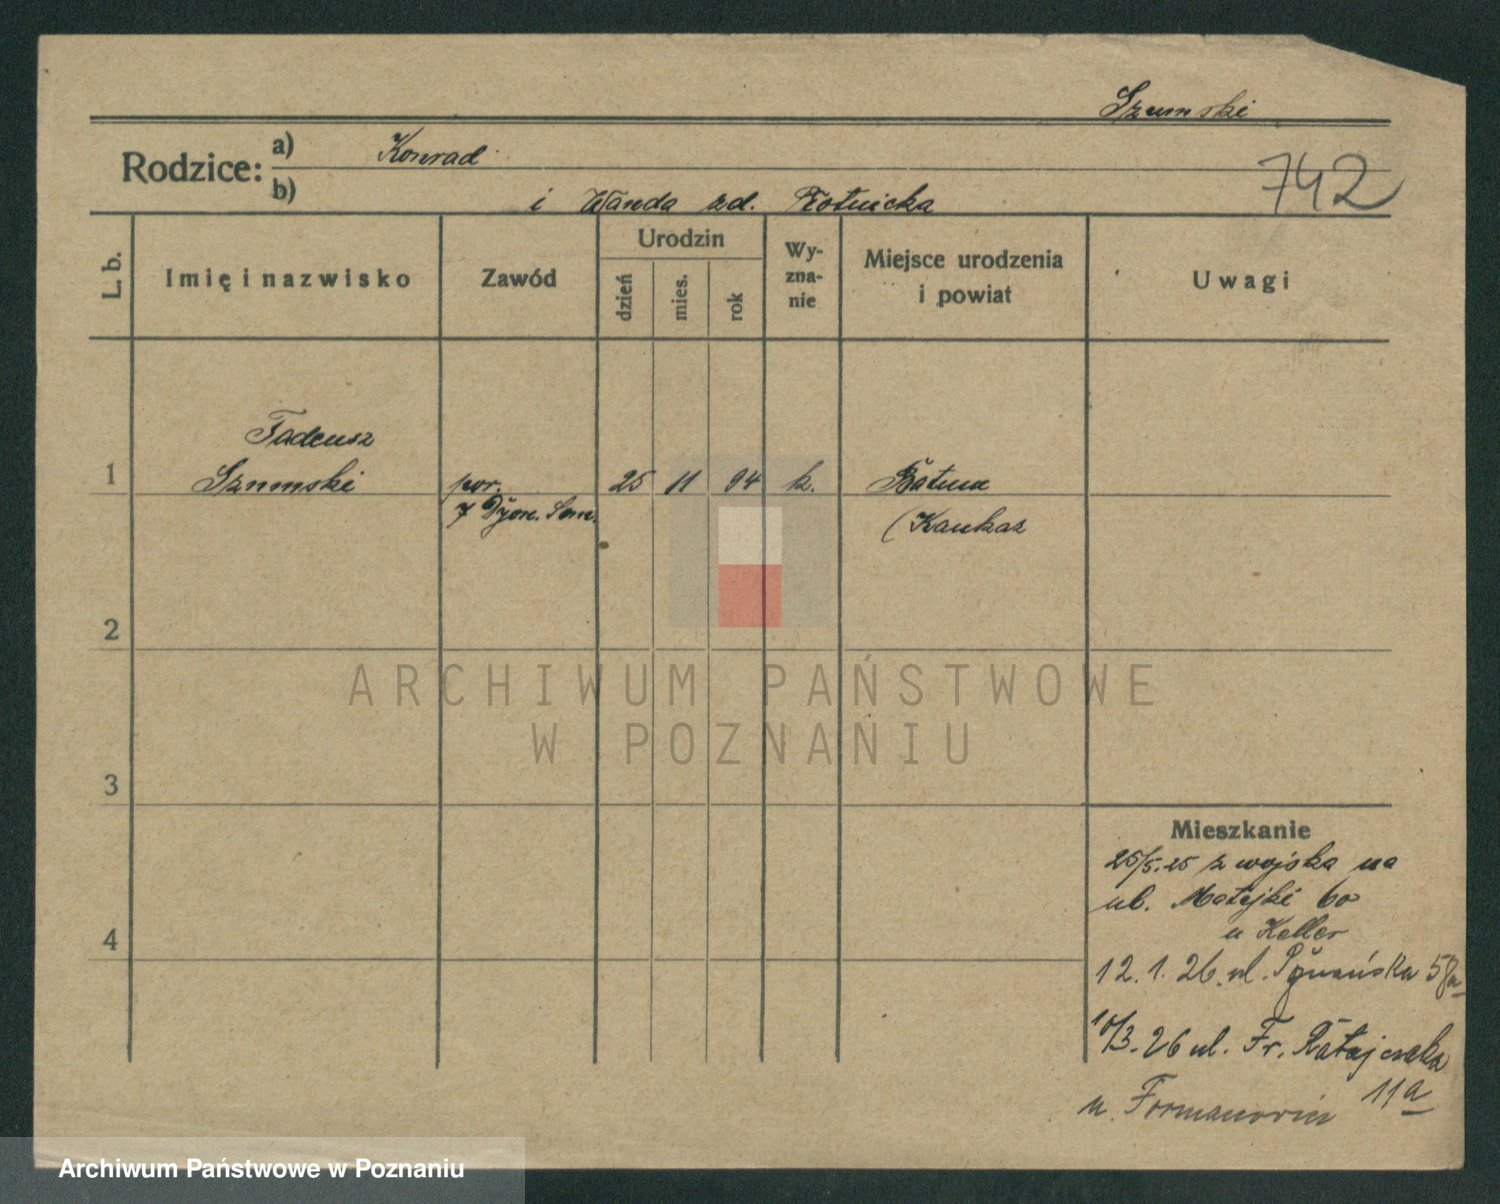 Szumski
Rodzice: a) Konrad
742
b) i Wanda zd. Złotnicka
L. b.
Imię i nazwisko
Zawód
Urodzin
dzień
mies.
rok
Wy-
zna-
nie
Miejsce urodzenia
i powiat
Uwagi
Tadeusz
1 Szumski por. 25 11 94 k. Batum
7 Dyon. Sam. (Kaukaz
2
ARCHIWUM PAŃSTWOWE
W POZNANIU
3
Mieszkanie
25/5.25 z wojska na
ul. Matejki 60
u Keller
4
12.1.26. ul.
10/3.26 ul. Fr. Ratajczaka
11a
u
Archiwum Państwowe w Poznaniu